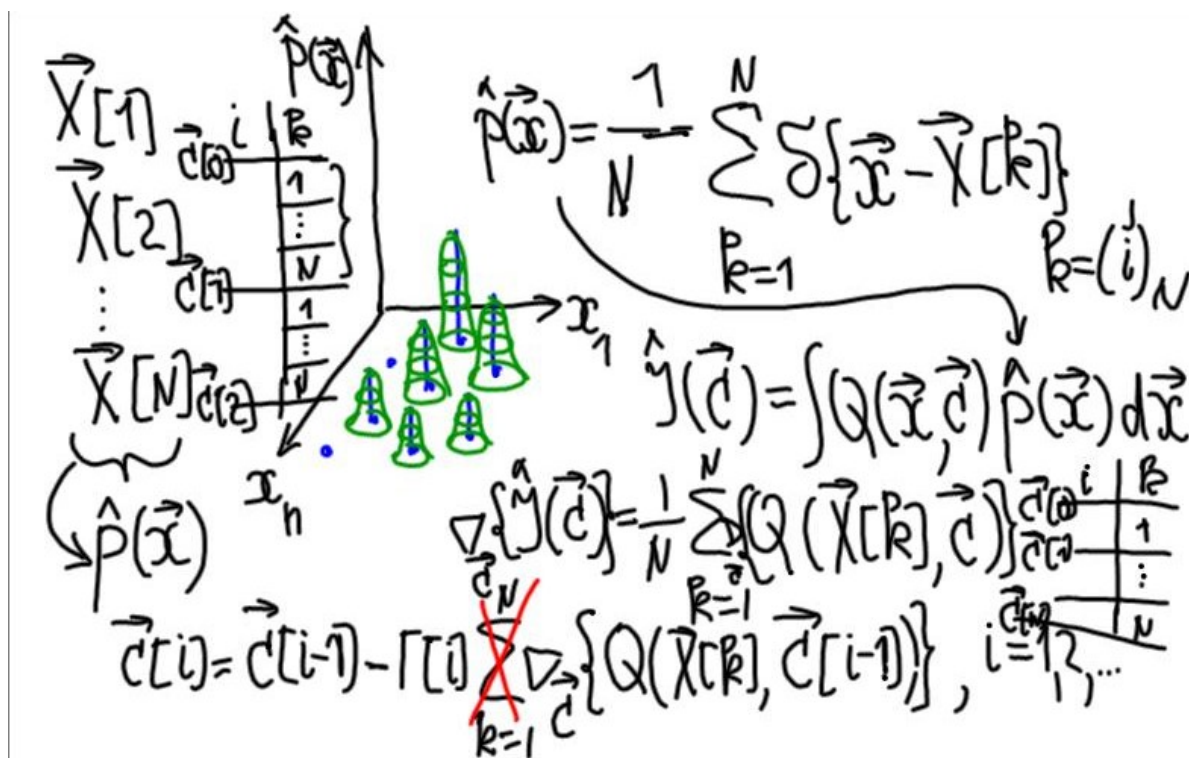 X⃗[1]
X⃗[2]
⋮
X⃗[N]
p̂(x⃗)
i | k
c⃗[0]
1
⋮
N
c⃗[1]
1
⋮
N
c⃗[2]
p̂(x⃗)
x₁
xₙ
p̂(x⃗) = 1/N ∑_{k=1}^{N} δ{x⃗ − X⃗[k]}
k = (i)_N
Ĵ(c⃗) = ∫Q(x⃗, c⃗) p̂(x⃗) dx⃗
∇_c⃗{Ĵ(c⃗)} = 1/N ∑_{k=1}^{N} ∇_c⃗{Q(X⃗[k], c⃗)}
i | k
c⃗[0]
1
c⃗[1]
⋮
c⃗[N]
N
c⃗[i] = c⃗[i−1] − Γ[i] ∑_{k=1}^{N} ∇_c⃗{Q(X⃗[k], c⃗[i−1])}, i = 1, 2, ...